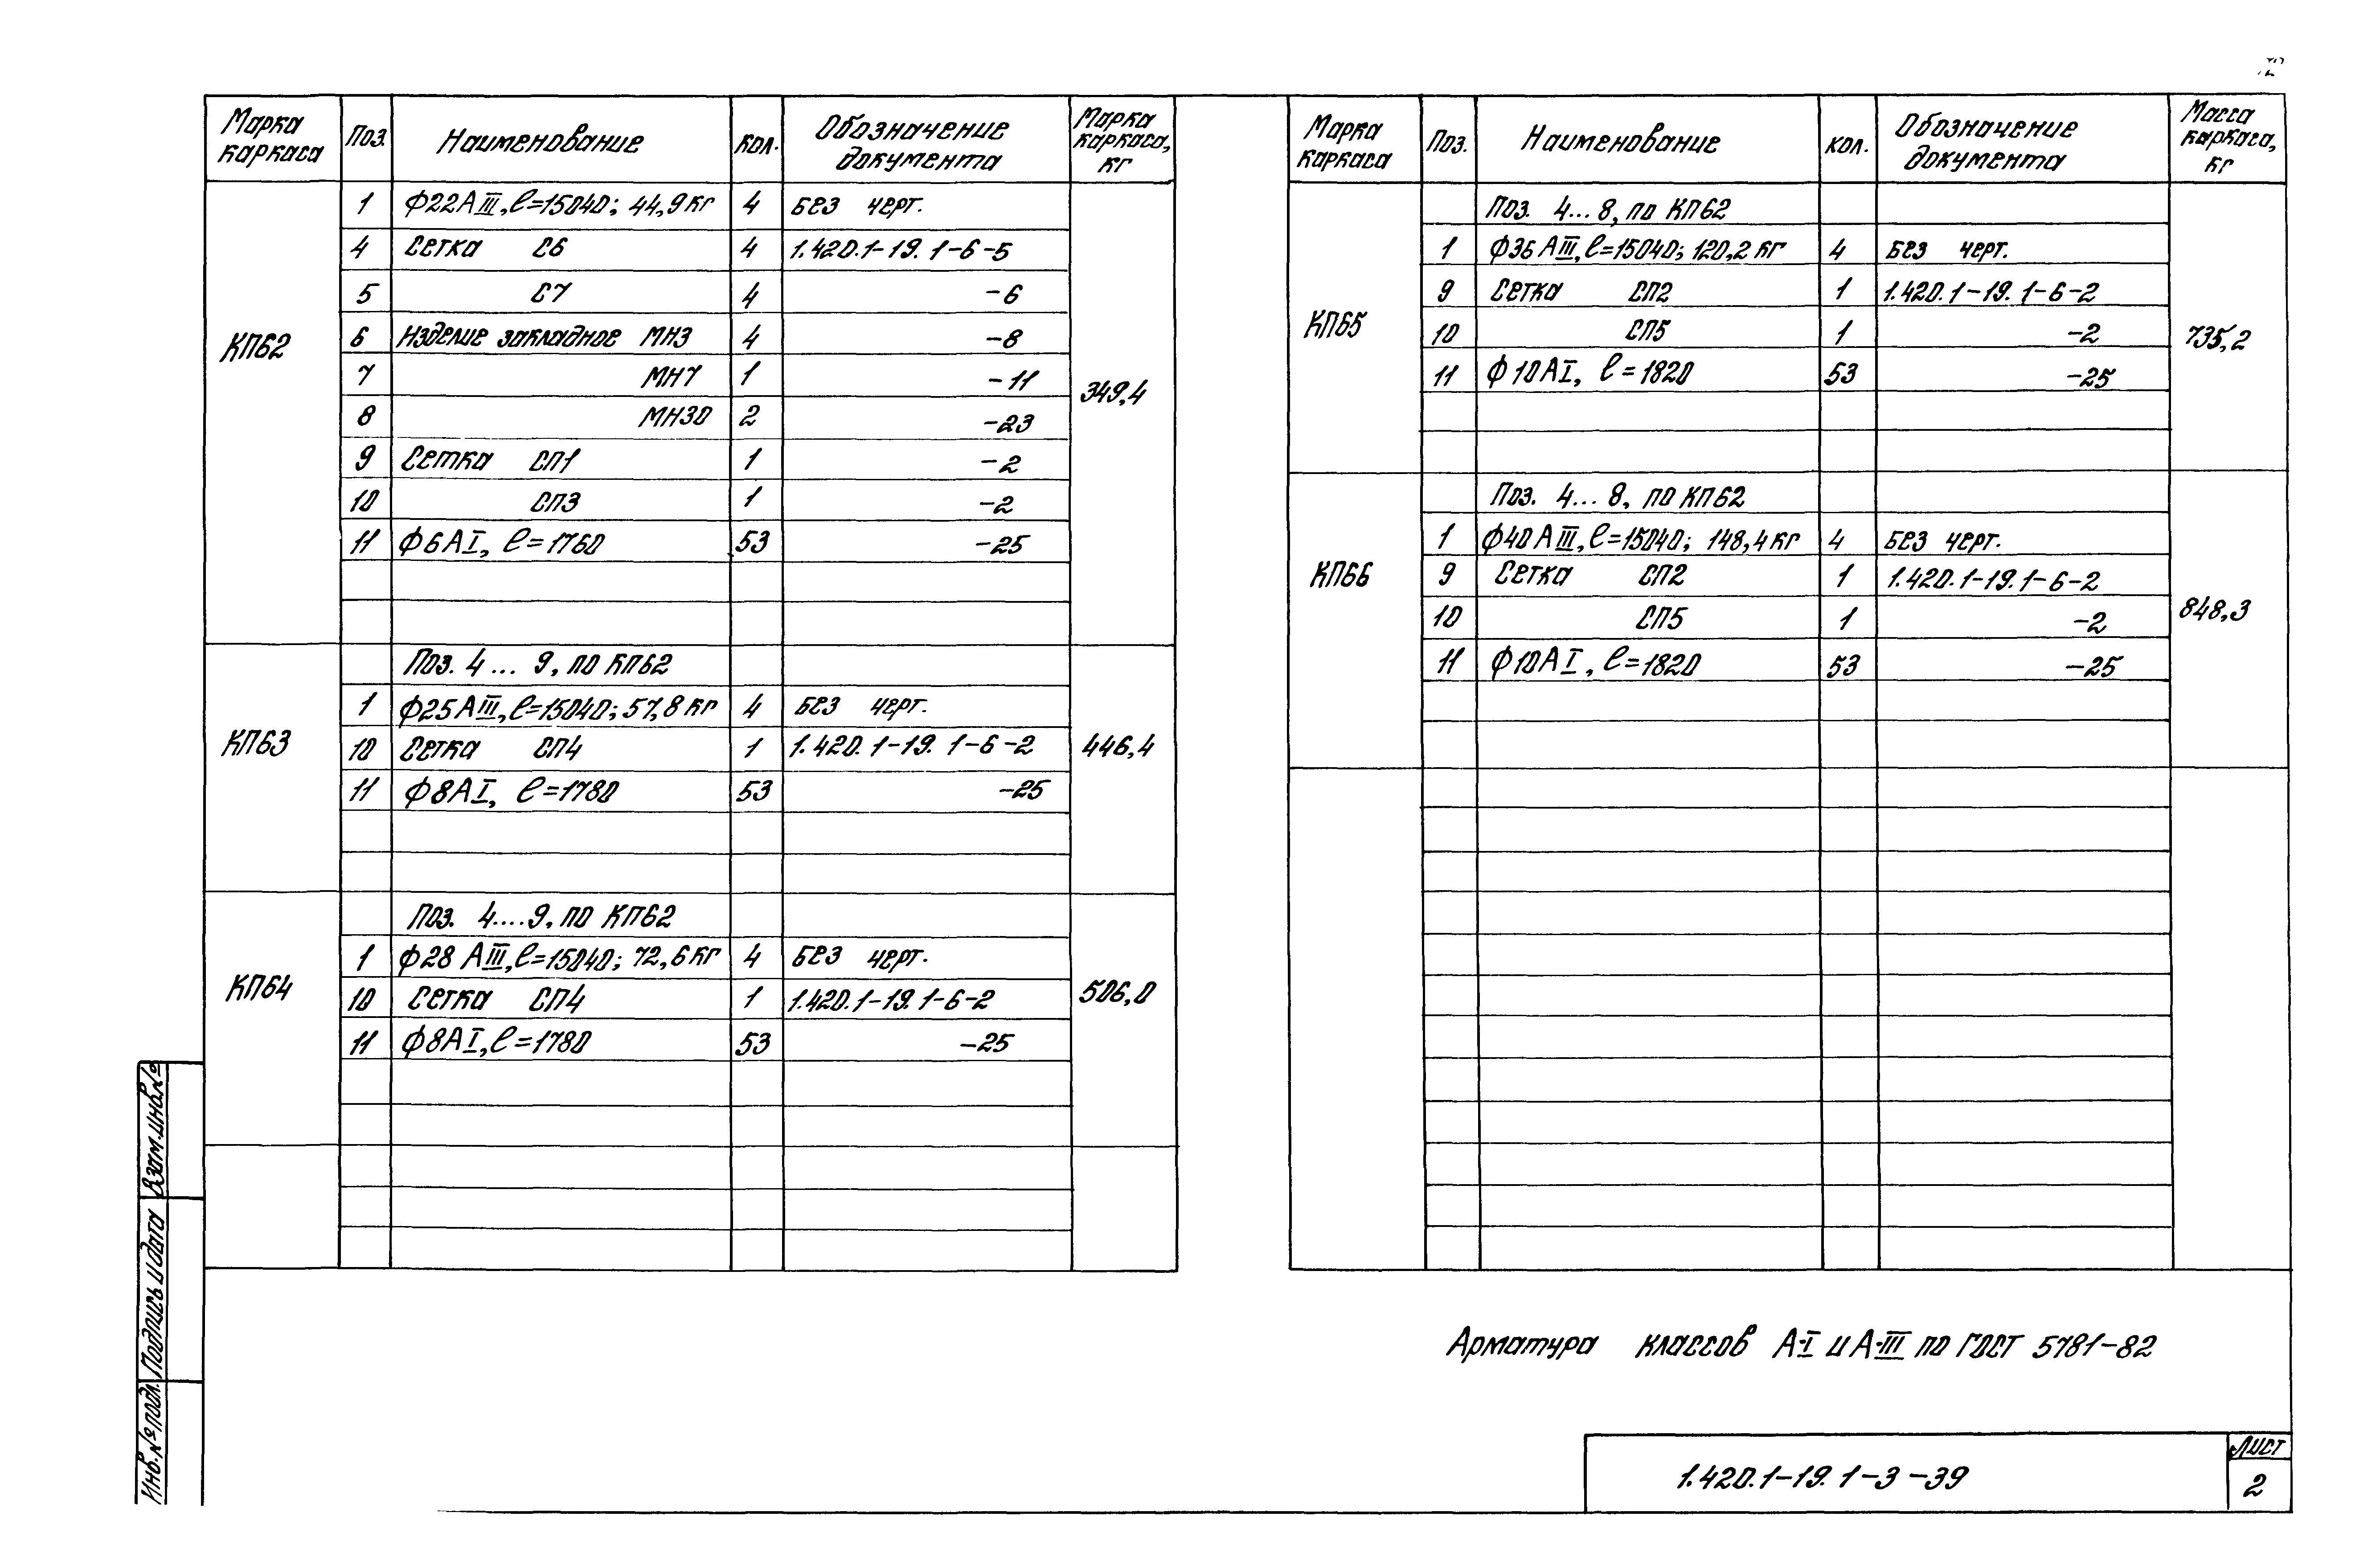 Марка каркаса Поз. Наименование кол. Обозначение документа Марка каркаса, кг
КП62 349,4
1 ф22АIII, ℓ=15040; 44,9кг 4 без черт.
4 Сетка С6 4 1.420.1-19. 1-6-5
5 С7 4 -6
6 Изделие закладное МН3 4 -8
7 МН7 1 -11
8 МН30 2 -23
9 Сетка СП1 1 -2
10 СП3 1 -2
11 ф6АI, ℓ=1760 53 -25
КП63 446,4
Поз. 4... 9, по КП62
1 ф25АIII, ℓ=15040; 57,8кг 4 без черт.
10 Сетка СП4 1 1.420.1-19. 1-6-2
11 ф8АI, ℓ=1780 53 -25
КП64 506,0
Поз. 4....9, по КП62
1 ф28 АIII, ℓ=15040; 72,6кг 4 без черт.
10 Сетка СП4 1 1.420.1-19. 1-6-2
11 ф8АI, ℓ=1780 53 -25
Марка каркаса Поз. Наименование кол. Обозначение документа Масса каркаса, кг
КП65 735,2
Поз. 4...8, по КП62
1 ф36 АIII, ℓ=15040; 120,2кг 4 без черт.
9 Сетка СП2 1 1.420.1-19. 1-6-2
10 СП5 1 -2
11 ф10АI, ℓ=1820 53 -25
КП66 848,3
Поз. 4...8, по КП62
1 ф40АIII, ℓ=15040; 148,4кг 4 без черт.
9 Сетка СП2 1 1.420.1-19. 1-6-2
10 СП5 1 -2
11 ф10АI, ℓ=1820 53 -25
Арматура классов А-I и А-III по ГОСТ 5781-82
1.420.1-19. 1-3-39
Лист
2
Взам.инв.№
Подпись и дата
Инв.№ подл.